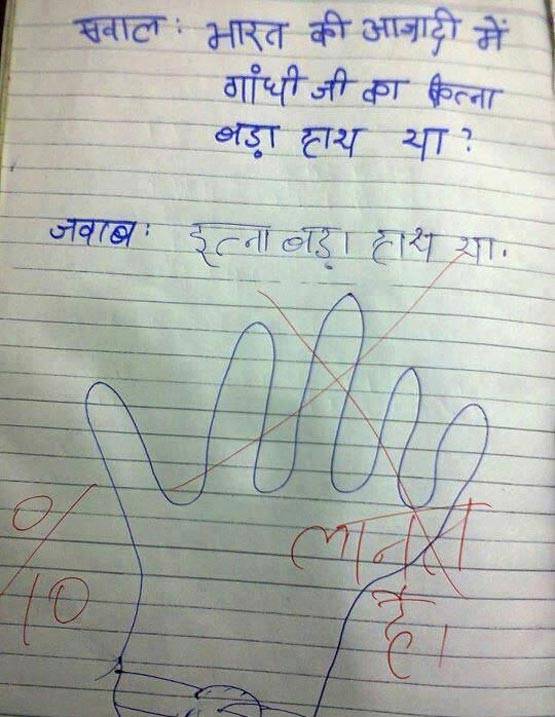 सवाल: भारत की आजादी में
गांधी जी का कितना
बड़ा हाथ था?
जवाब: इतना बड़ा हाथ था.
0/10
लानत
है।